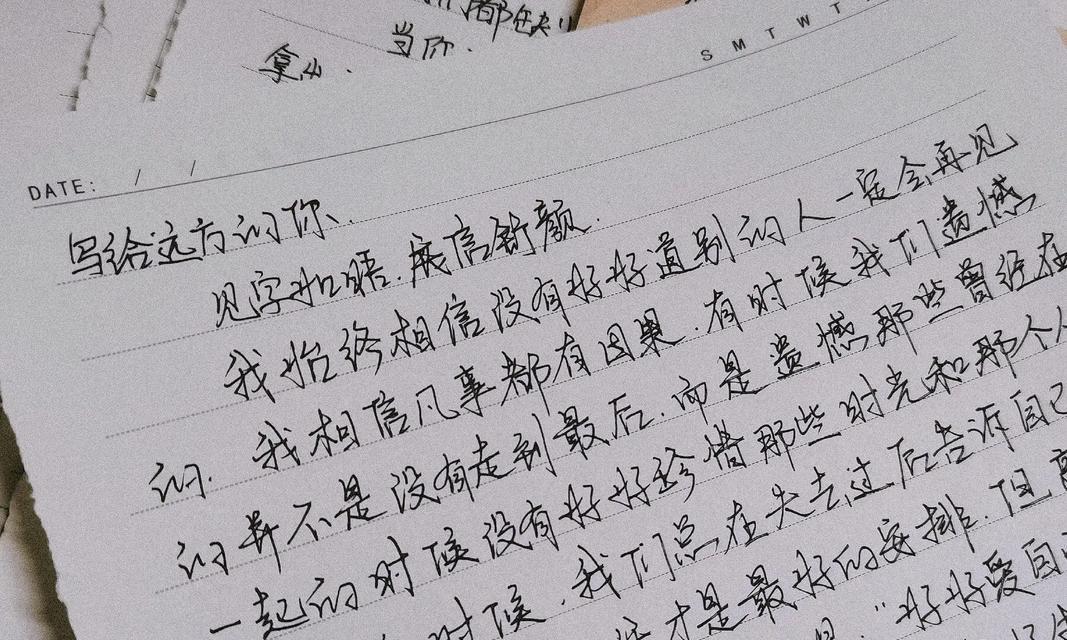 都
拿出.
当你.
S M T W T
DATE: / /
写给远方的你、
见字如晤.展信舒颜.
我始终相信没有好好道别的人一定会再见
的.我相信凡事都有因果.有时候我们遗憾
的并不是没有走到最后.而是遗憾那些曾经在
一起的时候没有好好珍惜那些时光和那个人
时候.我们总在失去过后告诉自己
才是最好的安排.但
"好好爱自